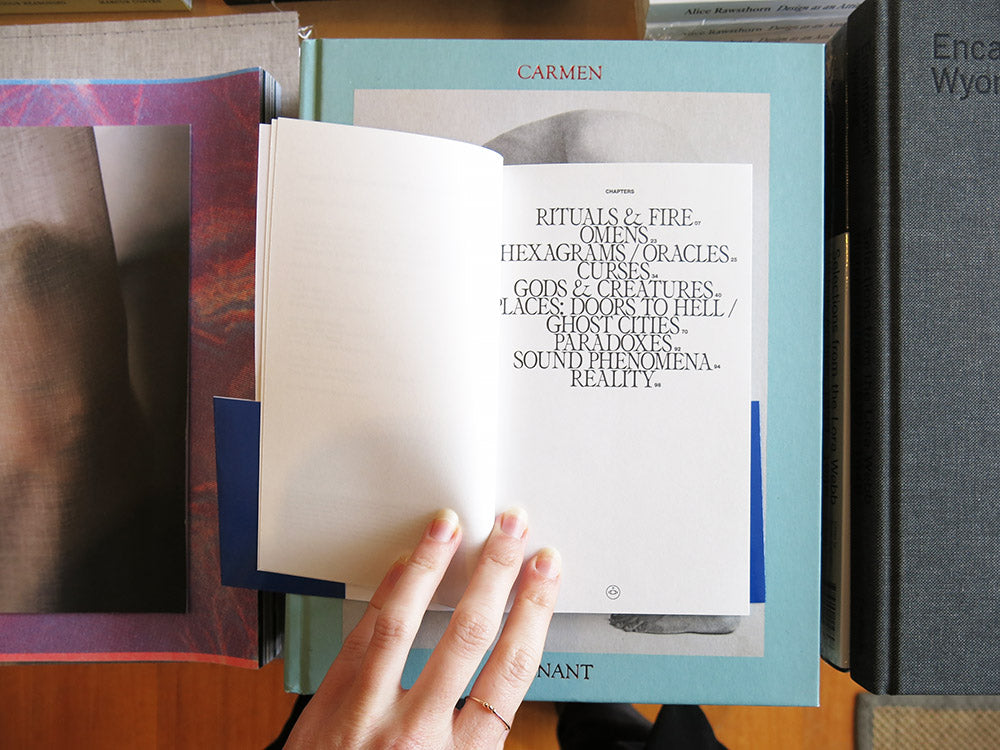 MARCUS COATES
Alice Rawsthorn Design as an Atti
Alice Rawsthorn Design as an Att
CARMEN
Enca
Wyom
CHAPTERS
RITUALS & FIRE 07
OMENS 23
HEXAGRAMS / ORACLES 25
CURSES 34
GODS & CREATURES 40
PLACES: DOORS TO HELL /
GHOST CITIES 70
PARADOXES 92
SOUND PHENOMENA 94
REALITY 98
Selections from the Lora Webb
NANT